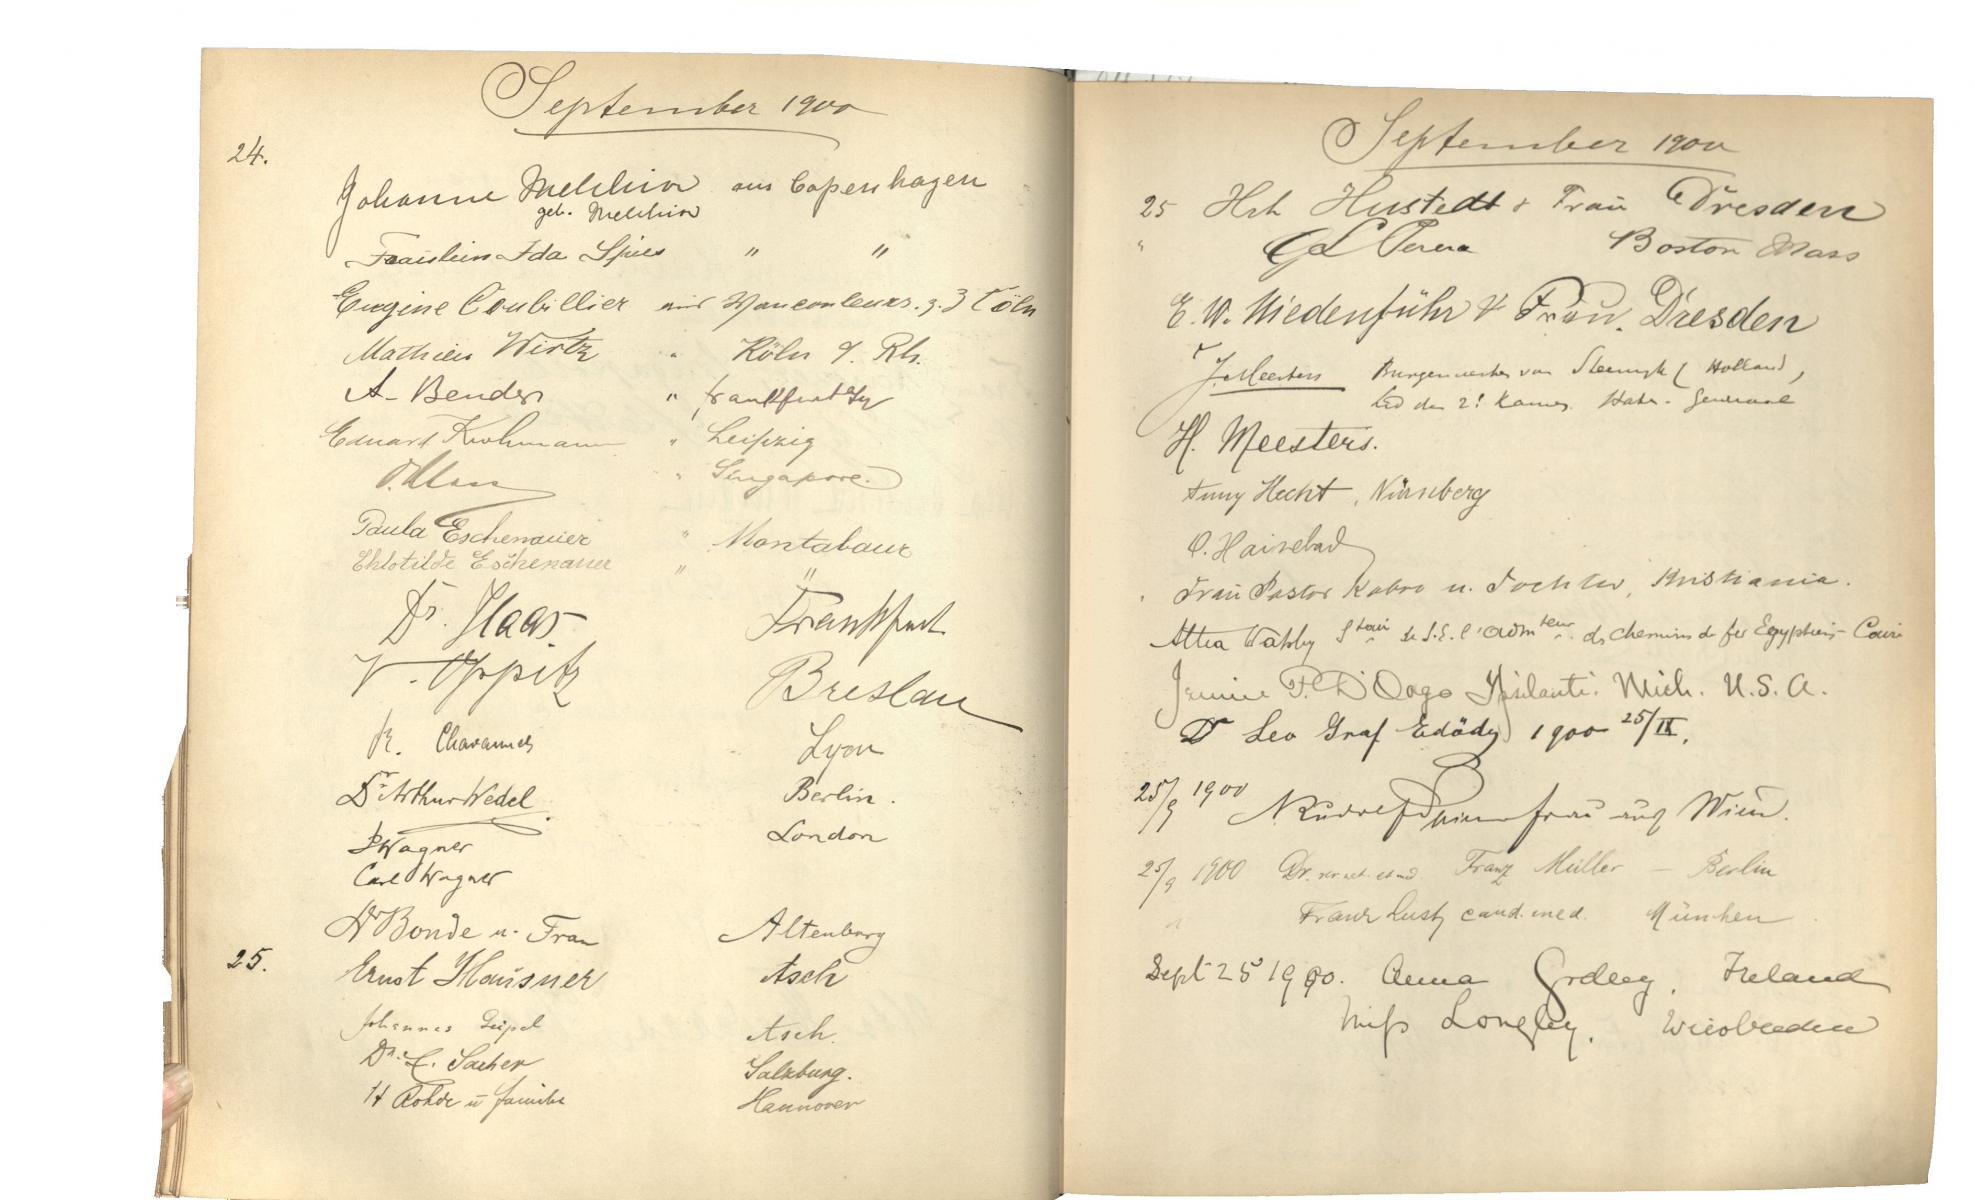 September 1900
24.
Johanne Melchior aus Copenhagen
geb. Melchior
Fräulein Ida Spies " "
Eugène Coubillier z. Z Cöln
Mathieu Wirtz " Köln a/ Rh.
A. Bender " Frankfurt
Eduard " Leipzig
" Singapore.
Paula Eschenauer " Montabaur
Chlotilde Eschenauer " "
Dr. Haas Frankfurt
V. Oppitz Breslau
Lyon
Dr Arthur Wedel Berlin.
P Wagner London
Carl Wagner
Dr Bonde u. Frau Altenburg
25. Ernst Hausner Asch
Johannes Geipel Asch.
Dr. Sacher Salzburg.
H Rohde u Familie Hannover
September 1900
25 Hch Hustedt & Frau Dresden
" G L Perera Boston Mass
E. W. Niedenführ & Frau. Dresden
J. Meesters Burgemeester van Steenwyk (Holland,
Lid der 2e Kamer Staten-Generaal
H. Meesters.
Hecht, Nürnberg
O.
Frau Pastor u. Tochter, Kristiania.
Attia Wahby de S.E. l'Admteur ds chemins de fer Egyptiens Caire
Jennie Ypsilanti. Mich. U.S.A.
Dr Leo Graf Erdödy 1900 25/IX.
25/9 1900 Rudolf Frau aus Wien.
25/9 1900 Dr. Franz Müller – Berlin
Franz Lust cand. med. München
Sept 25 1900. Anna Ireland
Miss Longley. Wiesbaden